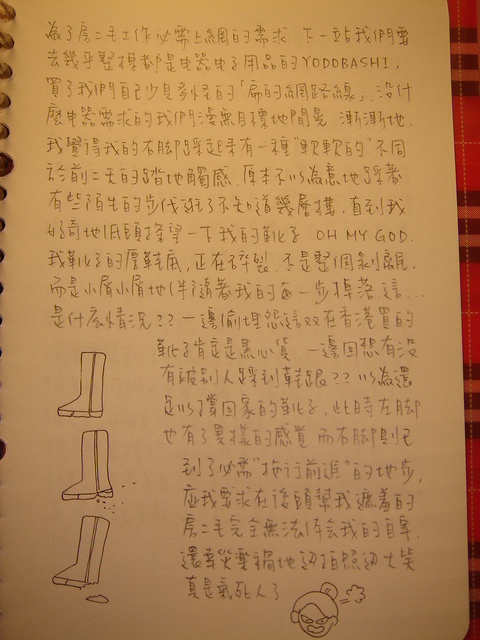 為了房二毛工作必需上網的需求,下一站我們要
去幾乎整棟都是电器电子用品的YODOBASHI,
買了我們自己少見多怪的「扁的網路線」,沒什
麼电器需求的我們漫無目標地閒晃,漸漸地,
我覺得我的右脚踩起来有一種"軟軟的"不同
於前二天的踏地觸感,原本不以為意地踩著
有些陌生的步伐逛了不知道幾層樓,直到我
好奇地低頭探望一下我的靴子,OH MY GOD.
我靴子的厚鞋底,正在碎裂,不是整個剝離,
而是小屑小屑地伴隨着我的每一步掉落,這...
是什麼情況??一邊偷埋怨這双在香港買的
靴子肯定是黑心貨,一邊回想有沒
有被别人踩到鞋跟??以為還
足以撐回家的靴子,此時左脚
也有了異樣的感覚,而右脚則已
到了必需"拖行前進"的地步,
应我要求在後頭幫我遮羞的
房二毛完全無法体会我的自卑,
還幸災樂禍地边拍照边大笑
真是氣死人了